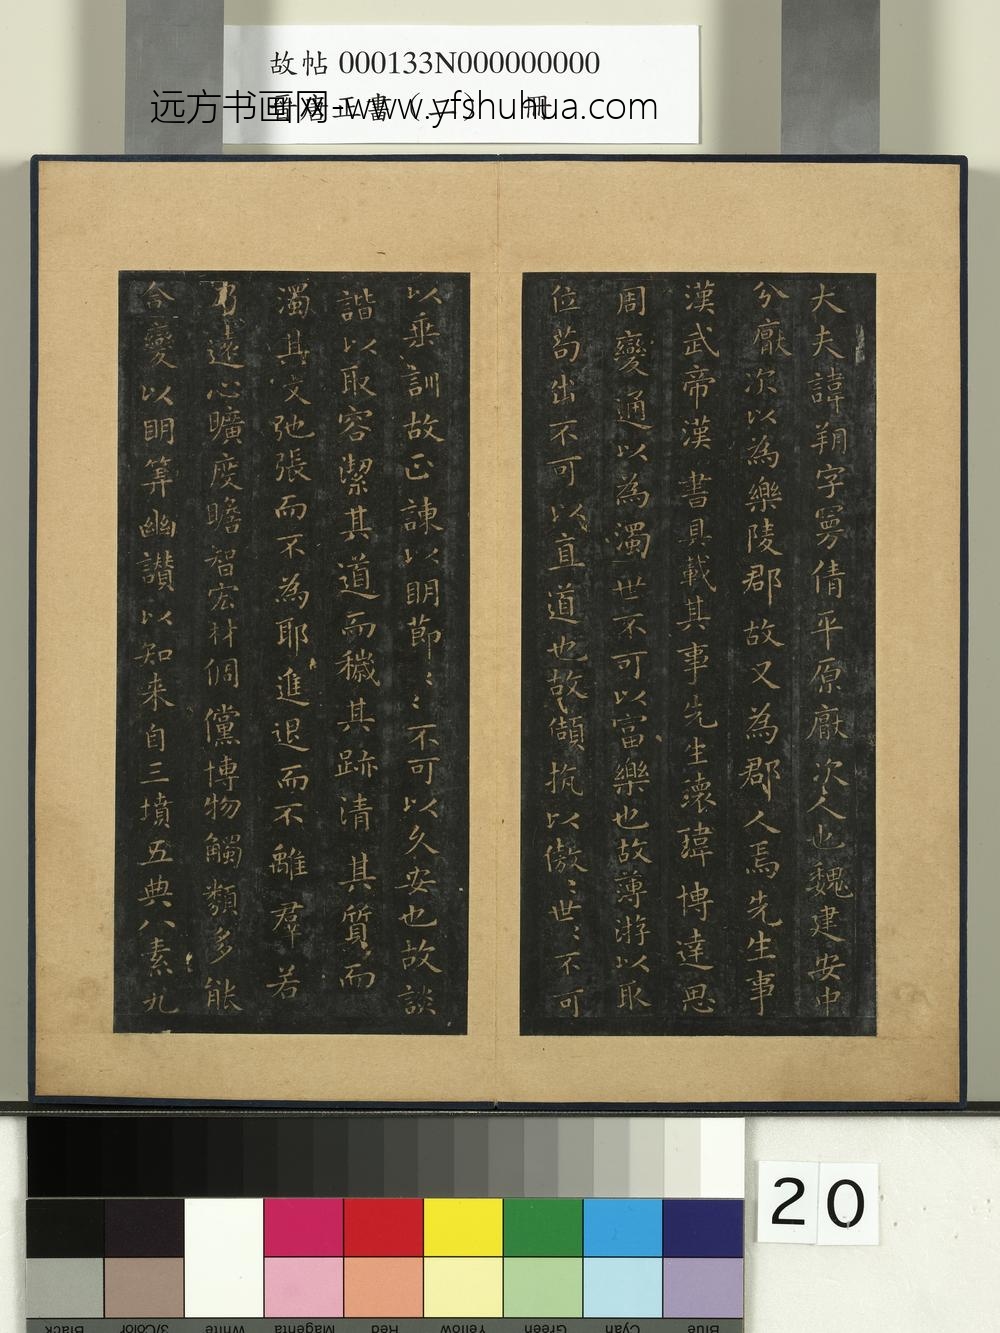 故帖 000133N000000000
远方书画网-www.yfshuhua.com
大夫諱朔字曼倩平原厭次人也魏建安中
分厭次以為樂陵郡故又為郡人焉先生事
漢武帝漢書具載其事先生瓌瑋博達思
周變通以為濁世不可以富樂也故薄游以取
位苟出不可以直道也故頡抗以傲〻世〻不可
以垂訓故正諫以明節〻〻不可以久安也故談
諧以取容潔其道而穢其跡清其質而
濁其文弛張而不為耶進退而不離群若
乃遠心曠度瞻智宏材倜儻博物觸類多能
合變以明筭幽讃以知来自三墳五典八素九
20
Black 3/Color White Magenta Red Yellow Green Cyan Blue